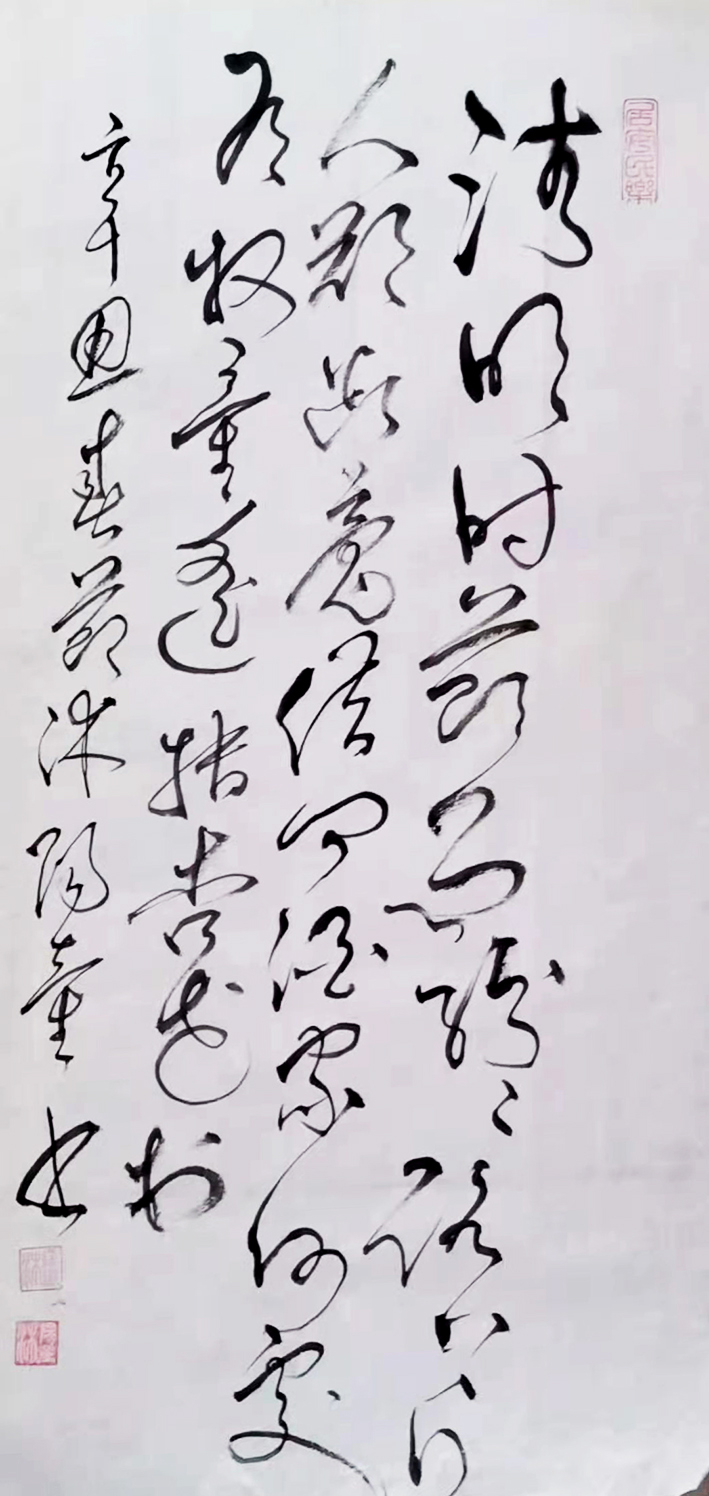 清明时节雨纷纷路上行
人欲断魂借问酒家何處
有牧童遥指杏花村
辛丑春节沭阳童书